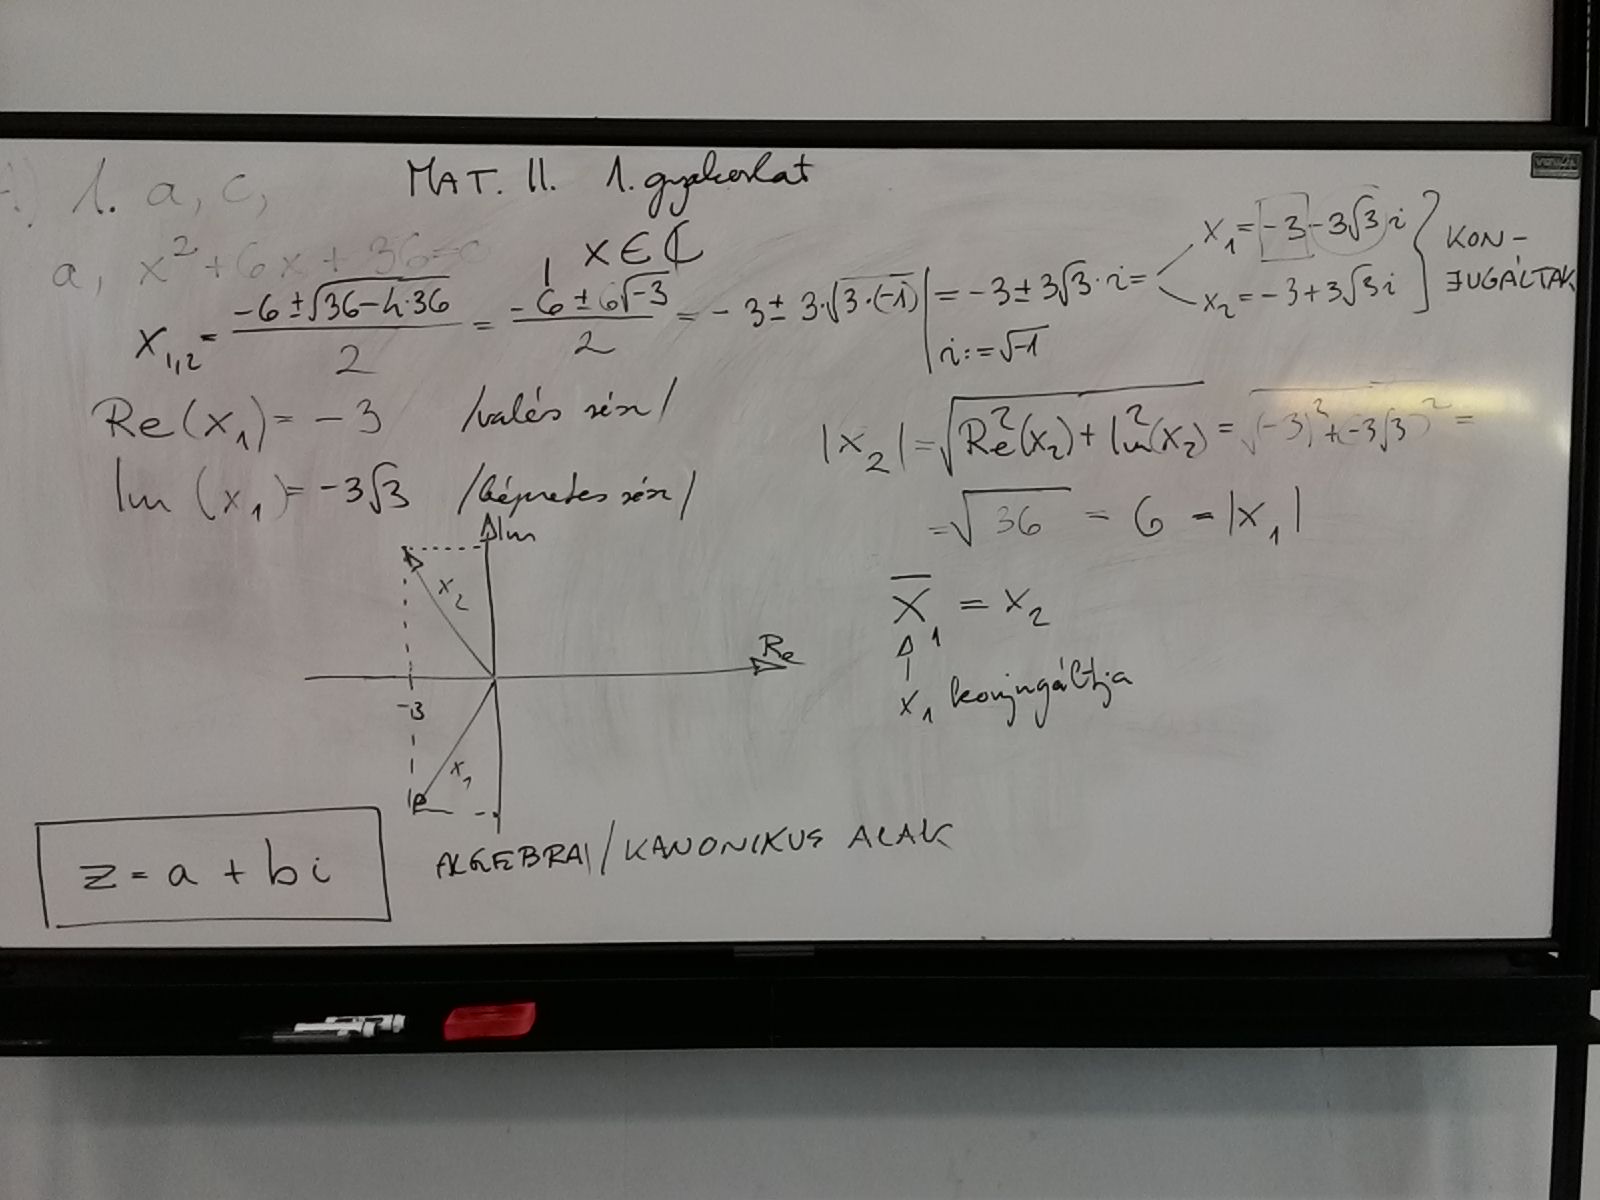 1. a, c,
MAT. II. 1. gyakorlat
a, x² + 6x + 36 = 0, x ∈ ℂ
x₁,₂ = (-6 ± √(36-4·36))/2 = (-6 ± 6√-3)/2 = -3 ± 3·√(3·(-1)) | = -3 ± 3√3·i =
i := √-1
x₁ = -3 - 3√3 i
x₂ = -3 + 3√3 i
} KON-
JUGÁLTAK
Re(x₁) = -3 /valós rész/
Im(x₁) = -3√3 /képzetes rész/
|x₂| = √(Re²(x₂) + Im²(x₂)) = √((-3)² + (-3√3)²) =
= √36 = 6 = |x₁|
x̄₁ = x₂
x₁ konjugáltja
Im
x₂
Re
-3
x₁
z = a + bi
ALGEBRAI / KANONIKUS ALAK